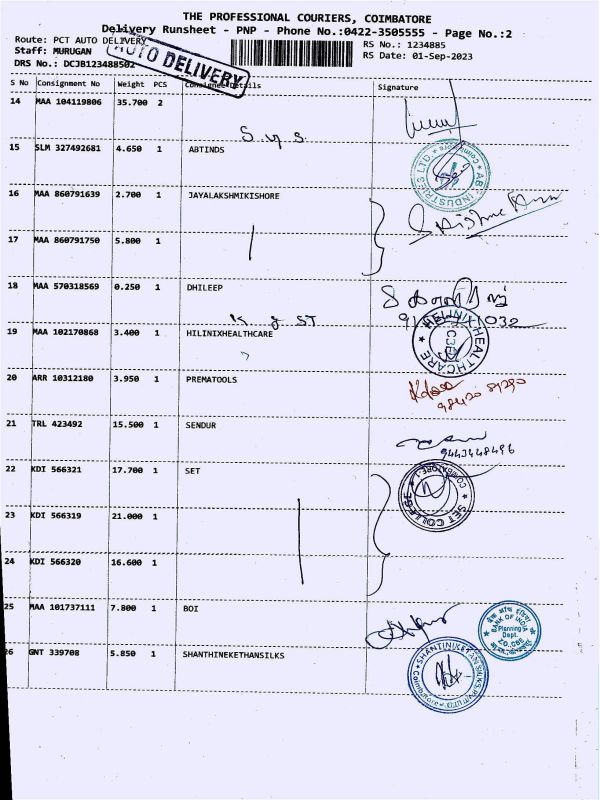 THE PROFESSIONAL COURIERS, COIMBATORE
Delivery Runsheet - PNP - Phone No.:0422-3505555 - Page No.:2
Route: PCT AUTO DELIVERY
RS No.: 1234885
Staff: MURUGAN
RS Date: 01-Sep-2023
DRS No.: DCJB123488502
AUTO DELIVERY
S No Consignment No Weight PCS Consignee Details Signature
14 MAA 104119806 35.700 2
15 SLM 327492681 4.650 1 ABTINDS
16 MAA 860791639 2.700 1 JAYALAKSHMIKISHORE
17 MAA 860791750 5.800 1
18 MAA 570318569 0.250 1 DHILEEP
19 MAA 102170868 3.400 1 HILINIXHEALTHCARE
HELINIX HEALTHCARE
20 ARR 10312180 3.950 1 PREMATOOLS
21 TRL 423492 15.500 1 SENDUR
9443448496
22 KDI 566321 17.700 1 SET
SET COLLEGE
23 KDI 566319 21.000 1
24 KDI 566320 16.600 1
25 MAA 101737111 7.800 1 BOI
BANK OF INDIA
Planning
Dept.
26 GNT 339708 5.850 1 SHANTHINEKETHANSILKS